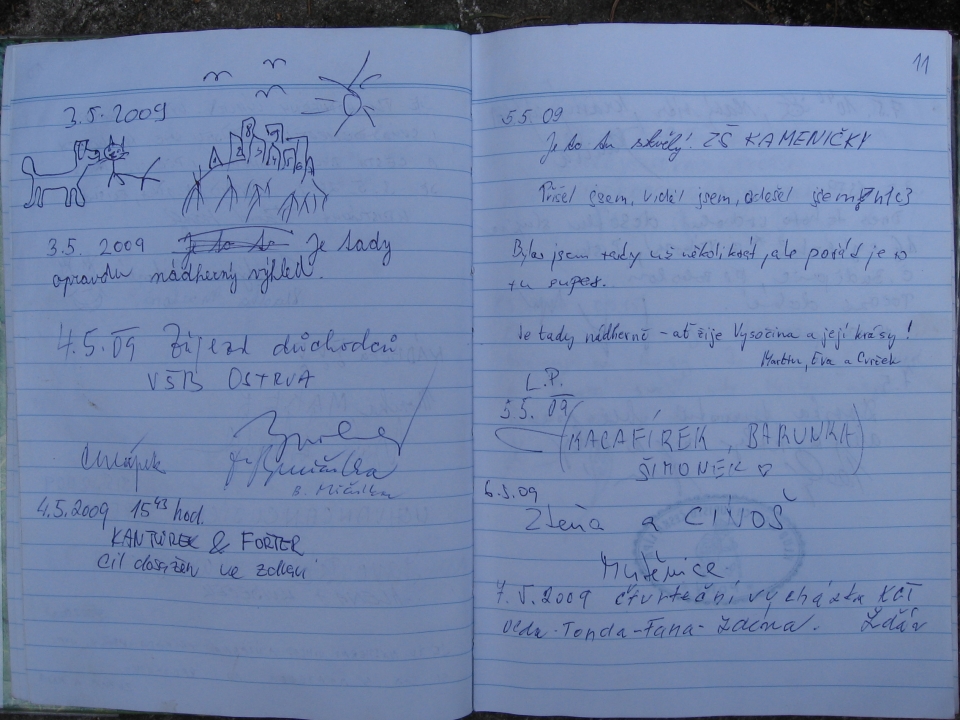 3.5.2009
3.5. 2009 Je to to Je tady
opravdu nádherný výhled.
4.5.09 Zájezd důchodců
VŠB OSTRVA
4.5.2009 15 43 hod.
KANTŮREK & FORTER
cíl dosažen ve zdraví
11
5.5.09
Je to tu skvělý! ZŠ KAMENIČKY
Přišel jsem, viděl jsem, odešel jsem
Byla jsem tady už několikrát, ale pořád je to
tu super.
Je tady nádherně - ať žije Vysočina a její krásy!
Martin, Eva a Cvrček
L.P.
5.5. 09
(KACAFÍREK, BARUNKA)
ŠIMONEK
6.5.09
Zdeňa a
Mutěnice
7.V.2009 čtvrteční vycházka KČT
Tonda-Fana-Zdena. Žďár